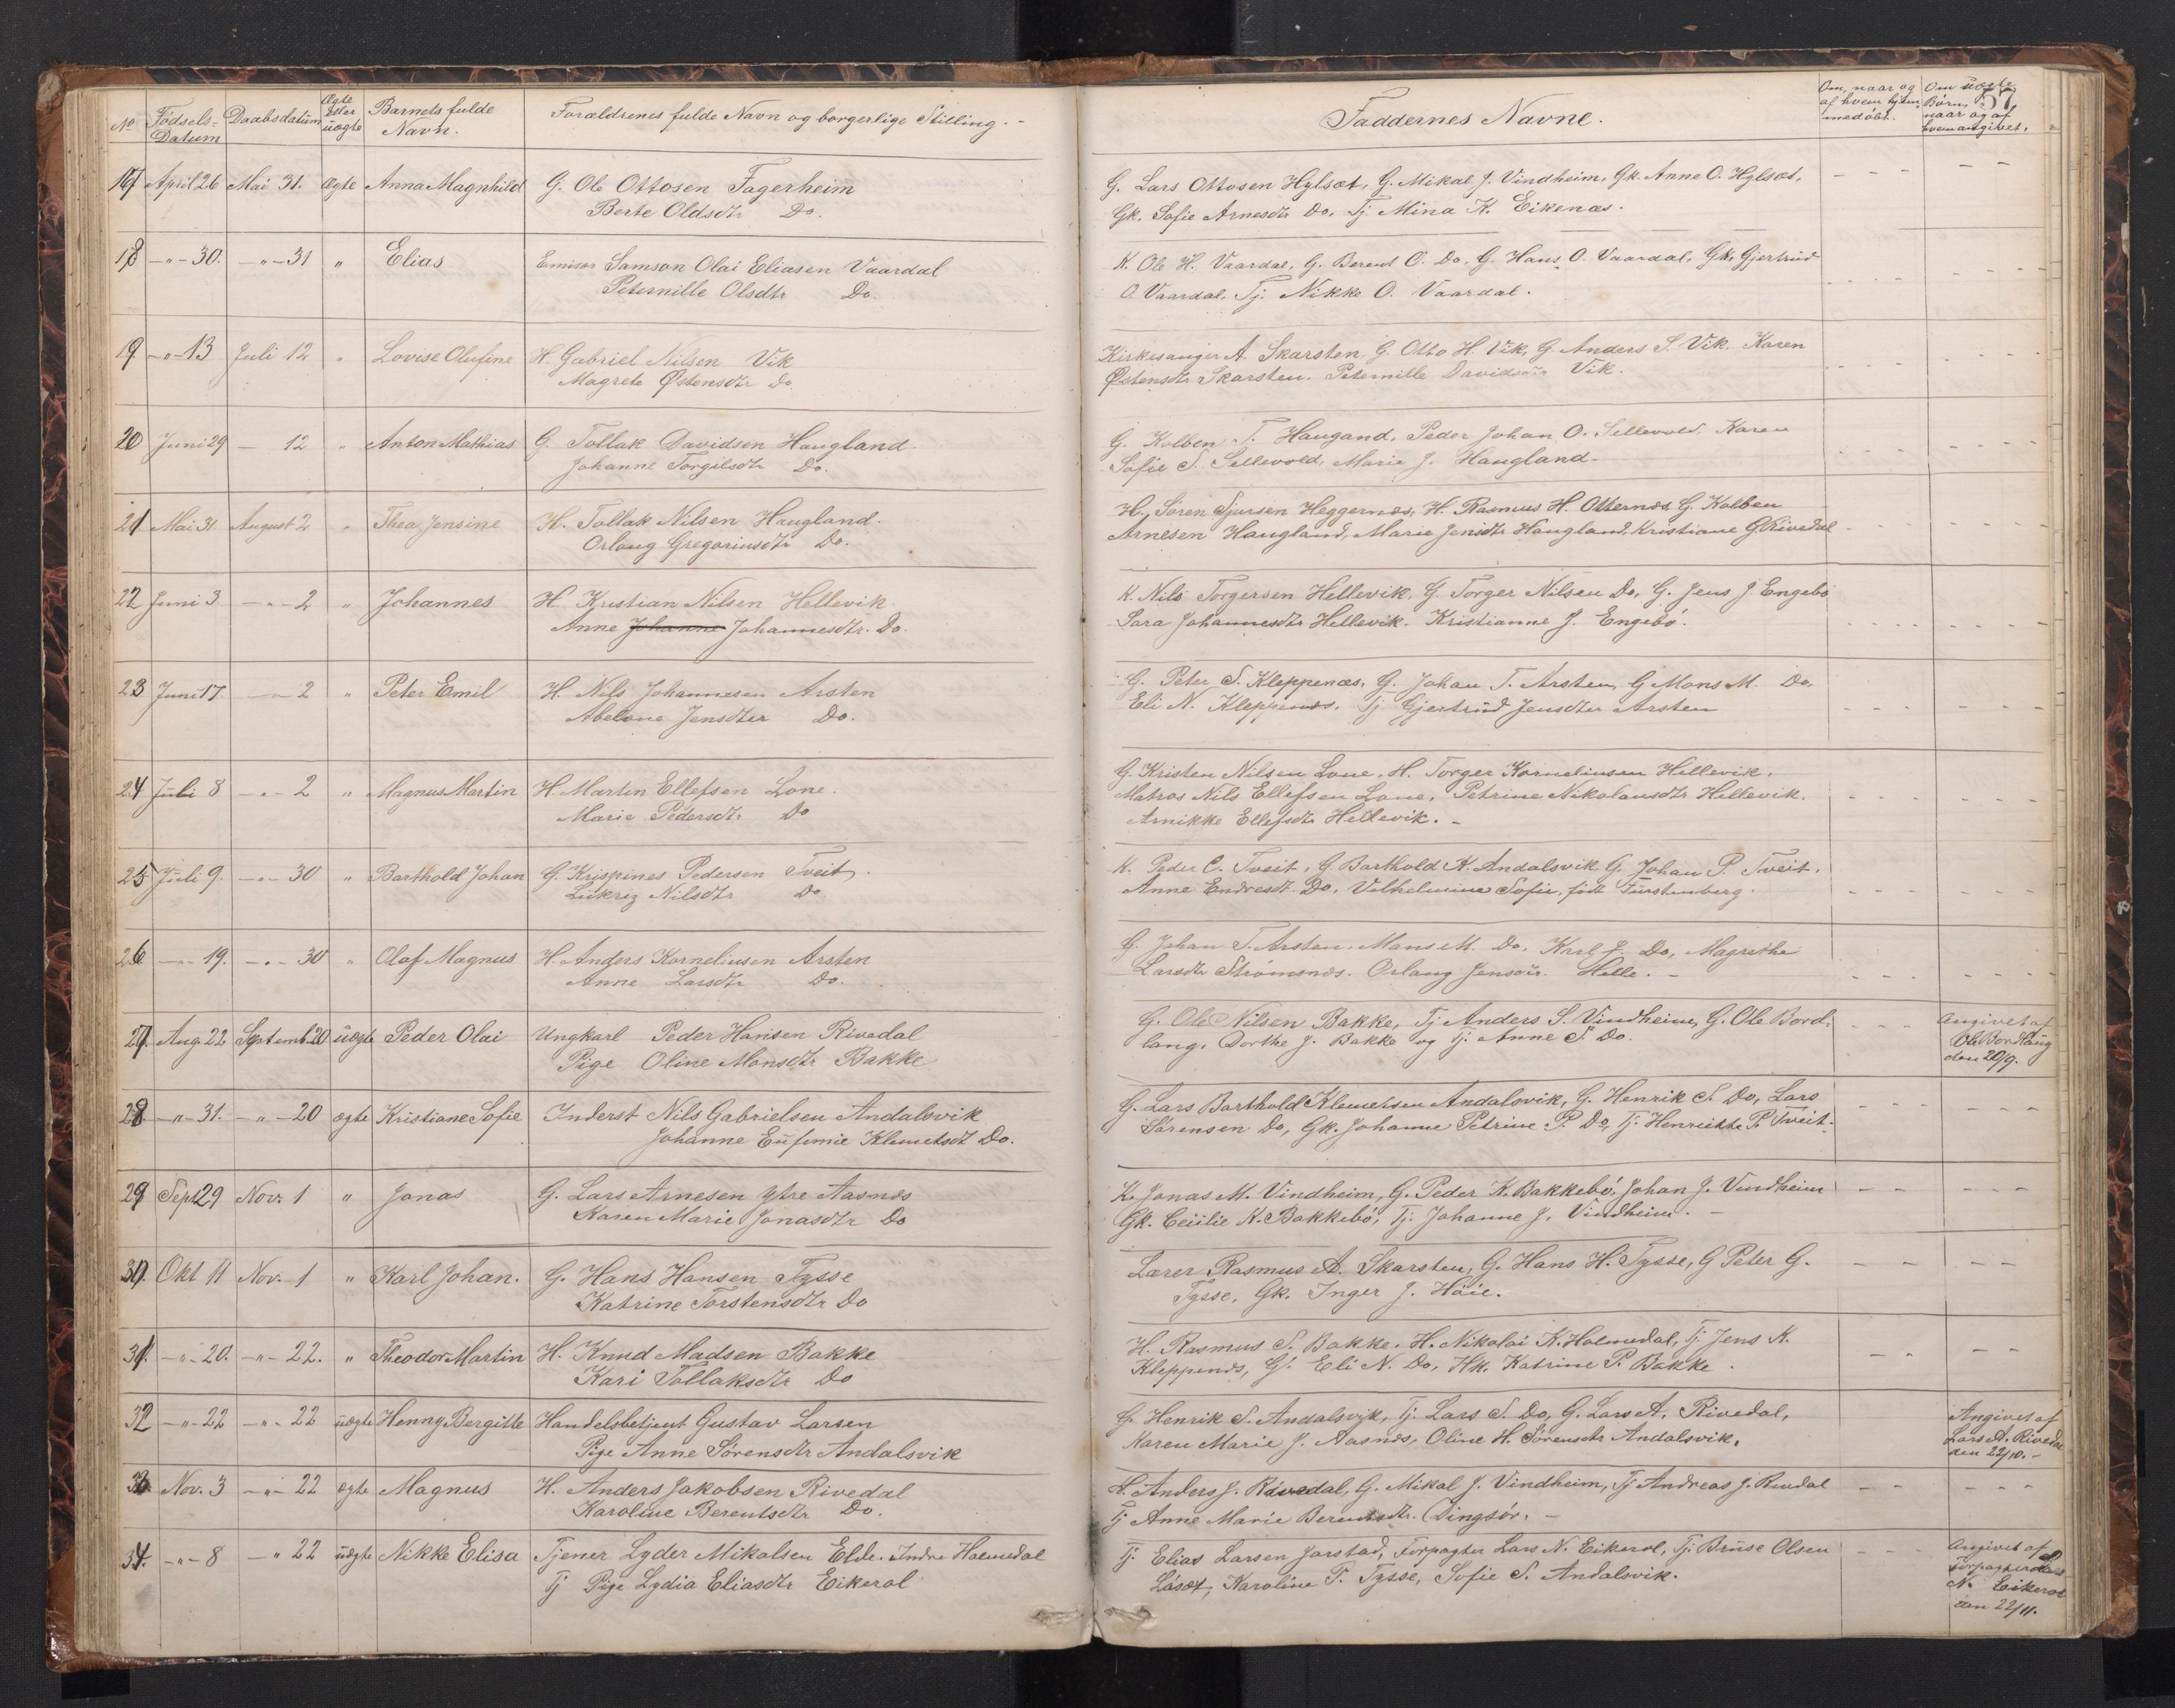 No Fødsels-Datum Daabsdatum Ægte eller uægte Barnets fulde Navn. Forældrenes fulde Navn og borgerlige Stilling.
17 April 26 Mai 31. Ægte Anna Magnhild G. Ole Ottosen Fagerheim
Berte Oldsdtr Do.
18 -"-30. -"-31 " Elias Emisær Samson Olai Eliasen Vaardal
Peternille Olsdtr Do.
19 -"-13 Juli 12 " Lovise Olufine H. Gabriel Nilsen Vik
Magrete Østensdtr Do
20 Juni 29 — 12 " Anton Mathias G. Tollak Davidsen Haugland
Johanne Torgilsdtr Do.
21 Mai 31 August 2 " Thea Jensine H. Tollak Nilsen Haugland.
Orlaug Gregoriusdtr Do.
22 Juni 3 -"-2 " Johannes H. Kristian Nilsen Hellevik
Anne Johanne Johannesdtr. Do.
23 Juni 17 -"-2 " Peter Emil H Nils Johannesen Arsten
Abelone Jensdter Do.
24 Juli 8 -"-2 " Magnus Martin H Martin Ellefsen Lone.
Marie Pedersdtr Do
25 Juli 9. -"-30 " Barthold Johan G. Krispines Pedersen Tveit.
Lükriz Nilsdtr Do
26 -"-19. -"-30 " Olaf Magnus H. Anders Korneliusen Arsten
Anne Larsdtr Do.
27. Aug. 22 Septemb. 20 uægte Peder Olai Ungkarl Peder Hansen Rivedal
Pige Oline Monsdtr Bakke
28 -"-31. -"-20 ægte Kristiane Sofie Inderst Nils Gabrielsen Andalsvik
Johanne Eufemie Klemetsdt Do.
29 Sept 29 Nov. 1 " Jonas G. Lars Arnesen Ytre Aasnæs
Karen Marie Jonasdtr Do
30. Okt 11 Nov. 1 " Karl Johan. G. Hans Hansen Tysse
Katrine Torstensdtr Do
31. -"-20. -"-22. " Theodor Martin H. Knud Madsen Bakke
Kari Tollaksdtr Do
32 -"-22 -"-22 uægte Henny Bergitte Handelsbetjent Gustav Larsen
Pige Anne Sørensdtr Andalsvik
33. Nov. 3 -"-22 ægte Magnus H. Anders Jakobsen Rivedal
Karoline Berentsdtr Do.
34. -"-8 -"22 uægte Nikke Elisa Tjener Lyder Mikalsen Elde. Indre Holmedal
Tj Pige Lydia Eliasdtr Eikerol
Faddernes Navne. Om, naar og af hvem hjemmedøbt. Om uægte Børn, naar og af hvem angivet. 57
G. Lars Ottosen Hylsæt, G. Mikal J. Vindheim, Gk. Anne O. Hylsæt,
Gk. Sofie Arnesdtr Do. Tj. Mina K. Eikenæs.
K. Ole H. Vaardal, G. Berent O. Do. G. Hans O. Vaardal, Gk. Gjertrud
O. Vaardal, Tj. Nikke O. Vaardal.
Kirkesanger A. Skarsten, G. Otto H. Vik, G. Anders S. Vik. Karen
Østensdtr Skarsten. Peternille Davidsdtr Vik.
G. Kolben T. Haugand, Peder Johan O. Sellevold, Karen
Sofie S. Sellevold, Marie J. Haugland
H., Sören Sjursen Heggernæs, H. Rasmus H. Otternæs, G. Kolben
Arnesen Haugland, Marie Jensdtr Haugland, Kristiane G. Rivedal
K. Nils Torgersen Hellevik, G. Torger Nilsen Do, G. Jens J. Engebö
Sara Johannesdtr Hellevik. Kristianne J. Engebö.
G. Peter S. Kleppenæs, G. Johan T. Arsten, G Mons M. Do,
Eli N. Kleppenæs, Tj Gjertrud Jensdter Arsten
G. Kristen Nilsen Lone, H. Torger Korneliusen Hellevik,
Matros Nils Ellefsen Lone, Petrine Nikolausdtr Hellevik,
Arnikke Ellefsdtr Hellevik.
K. Peder C. Tveit, G Barthold K. Andalsvik G. Johan P. Tveit,
Anne Endresdt. Do, Vilhelmine Sofie, født Fürstenberg.
G. Johan T. Arsten, Mons M. Do. Karl J. Do, Magrethe
Larsdtr Strömsnæs. Orlaug Jensdtr. Helle.
G. Ole Nilsen Bakke, Tj Anders S. Vindheim, G. Ole Bord-
laug, Dorthe J. Bakke og Tj. Anne S. Do. Angivet af Ole Bordlaug den 20/9.
G. Lars Barthold Klemetsen Andalsvik, G. Henrik S. Do, Lars
Sörensen Do, Gk. Johanne Petrine P. Do, Tj. Henriette P. Tveit.
K. Jonas M. Vindheim, G. Peder K. Bakkebö, Johan J. Vindheim
Gk. Ceeilie K. Bakkebö, Tj. Johanne J. Vindheim.
Lærer Rasmus A. Skarsten, G. Hans H. Tysse, G Peter G.
Tysse, Gk. Inger J. Höie.
H. Rasmus S. Bakke, H. Nikolai K. Holmedal, Tj Jens K.
Kleppenæs, G. Eli N. Do, Hk. Katrine P. Bakke.
G. Henrik S. Andalsvik, Tj. Lars S. Do, G. Lars A. Rivedal,
Karen Marie J. Aasnæs, Oline H. Sörensdtr Andalsvik. Angivet af Lars A. Rivedal den 22/10.
H. Anders J. Rivedal, G. Mikal J. Vindheim, Tj Andreas J. Rivedal
Tj Anne Marie Berentsdtr. Dingsör.
Tj. Elias Larsen Jarstad, Forpagter Lars N. Eikerol, Tj. Brüse Olsen
Låsæt, Karoline T. Tysse, Sofie S. Andalsvik. Angivet af Forpagter Lars N. Eikerol den 22/11.